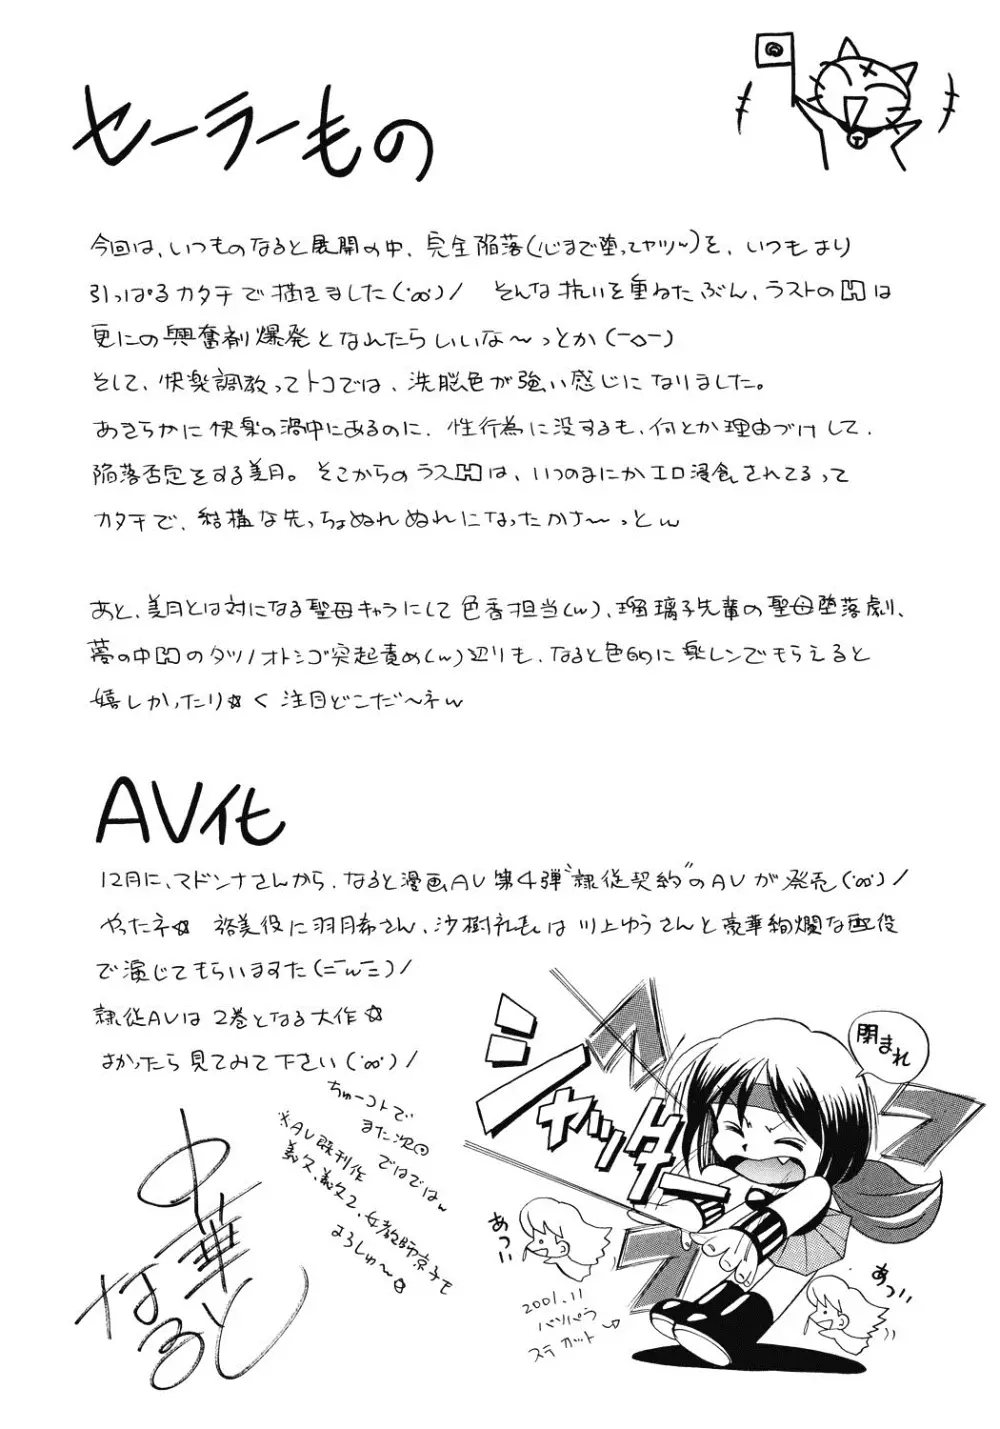 セーラーもの
今回は、いつものなると展開の中、完全陥落(心まで堕ってヤツ〜)を、いつもより
引っぱるカタチで描きました(°∞°)/ そんな抗いを重ねたぶん、ラストのHは
更にの興奮剤爆発となれたらいいな〜っとか(-◇-)
そして、快楽調教ってトコでは、洗脳色が強い感じになりました。
あきらかに快楽の渦中にあるのに、性行為に没するも、何とか理由づけして、
陥落否定をする美月。そこからのラスHは、いつのまにかエロ浸食されてるって
カタチで、結構な先っちょぬれぬれになったかさ〜っとw
あと、美月とは対になる聖母キャラにして色香担当(w)、瑠璃子先輩の聖母堕落劇、
夢の中Hのタツノオトシゴ突起責め(w)辺りも、なると色的に楽しんでもらえると
嬉しかったり☆く 注目どこだ〜ネw
AV化
12月に、マドンナさんから、なると漫画AV第4弾"隷従契約"のAVが発売(°∞°)/
やったネ☆ 裕美役に羽月希さん、沙樹礼は川上ゆうさんと豪華絢爛な配役
で演じてもらいますた(=w=)/
隷従AVは2巻となる大作☆
よかったら見てみて下さい(°∞°)/
ちゅーコトで
また次回
ではではw
※AV既刊作
義父、義父2、女教師京子も
よろしゅ〜☆
中華なると
シャッター
閉まれ
あつい
あつい
2001.11
パソパラ
ステカット